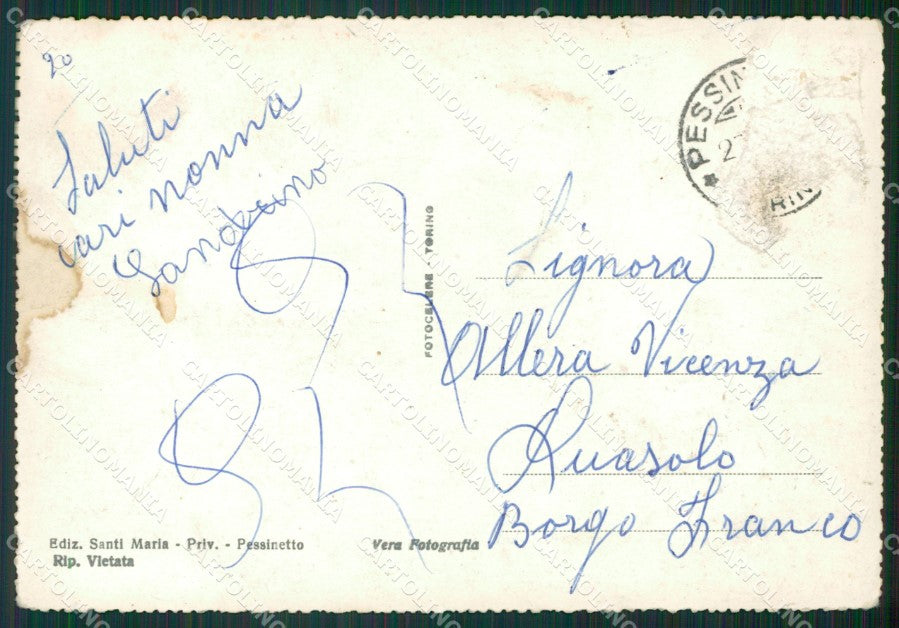 20
Saluti
cari nonna
Sandrino
FOTOCELERE - TORINO
PESSIN
2
RINO
Signora
Allera Vicenza
Ruasolo
Borgo Franco
Ediz. Santi Maria - Priv. - Pessinetto
Rip. Vietata
Vera Fotografia
CARTOLINOMANIA